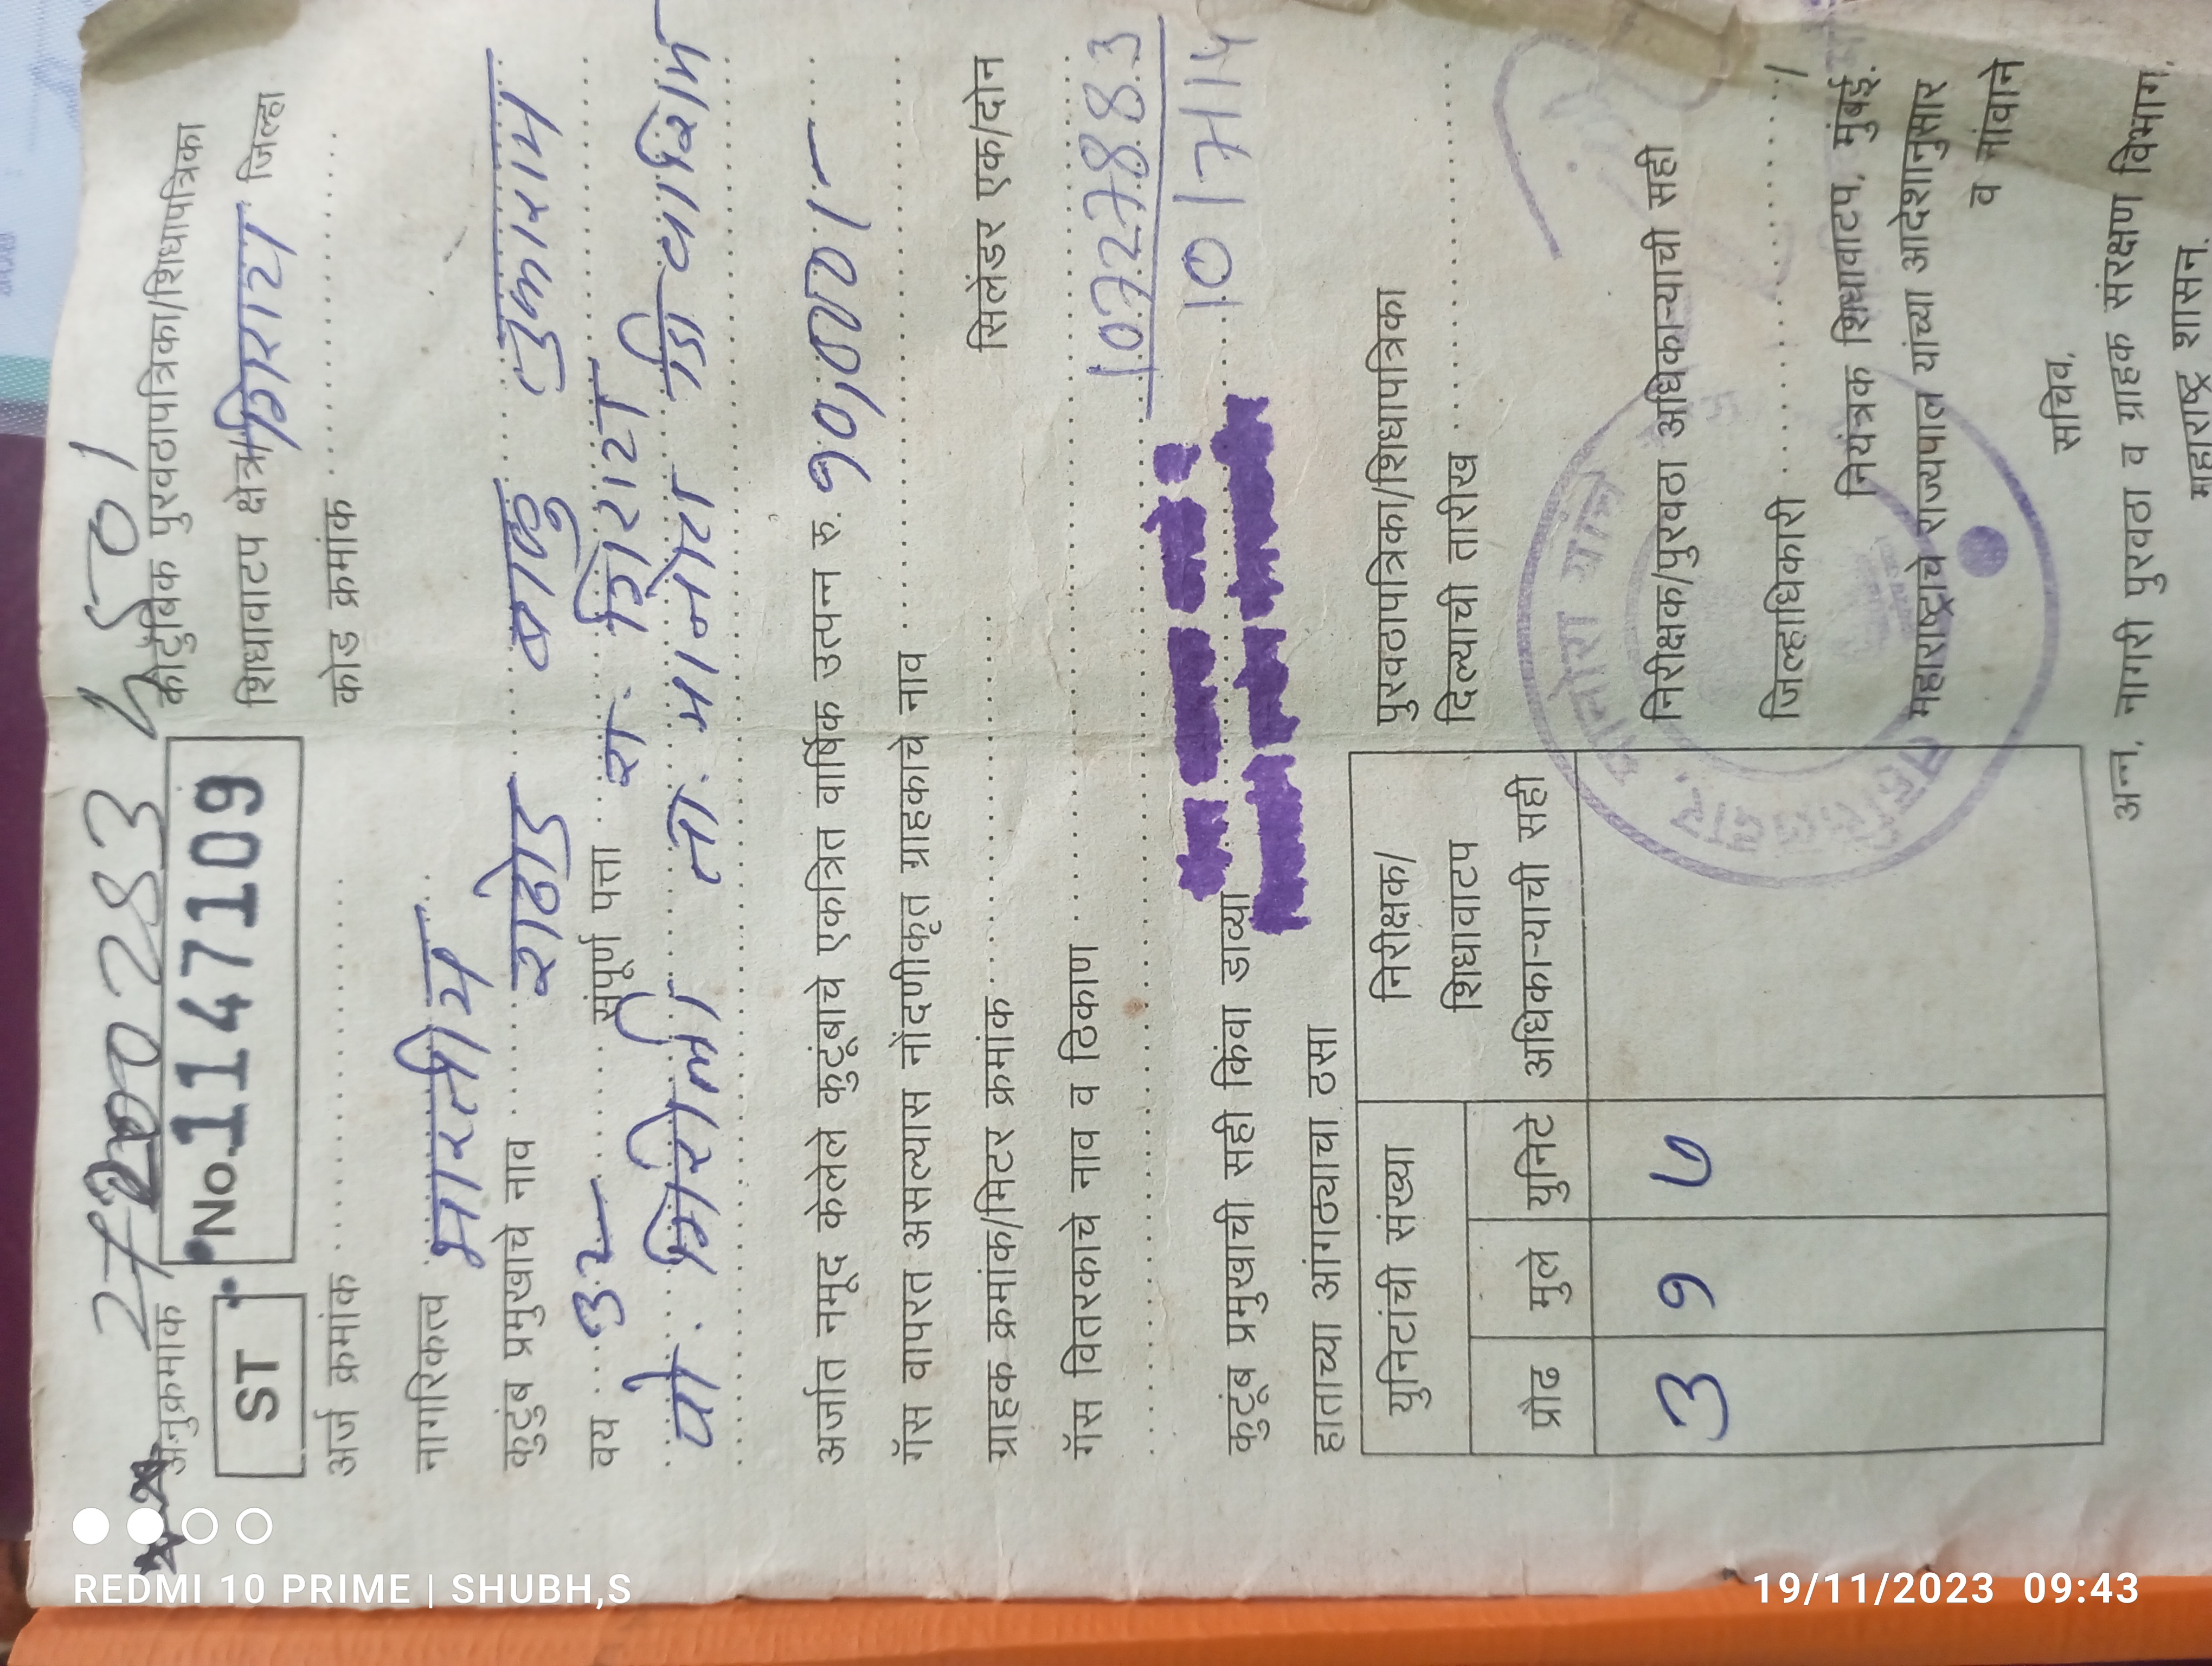 272000283
अनुक्रमांक
कौटुंबिक पुरवठापत्रिका/शिधापत्रिका
ST
No. 1147109
शिधावाटप क्षेत्र/गिराटा जिल्हा
अर्ज क्रमांक
कोड क्रमांक
नागरिकत्व भारतीय
कुटुंब प्रमुखाचे नाव राठोड बाळु तुकाराम
वय 32 संपूर्ण पत्ता रा. गिराटा
पो. गिरोली ता. मानोरा जि वाशिम
अर्जात नमूद केलेले कुटुंबाचे एकत्रित वार्षिक उत्पन्न रु. १०,०००/-
गॅस वापरत असल्यास नोंदणीकृत ग्राहकाचे नाव
ग्राहक क्रमांक/मिटर क्रमांक सिलेंडर एक/दोन
गॅस वितरकाचे नाव व ठिकाण
10727883
कुटूंब प्रमुखाची सही किंवा डाव्या 10/7/14
हाताच्या आंगठ्याचा ठसा
युनिटांची संख्या
निरीक्षक/
शिधावाटप
अधिकाऱ्याची सही
प्रौढ मुले युनिट
3 १ ७
पुरवठापत्रिका/शिधापत्रिका
दिल्याची तारीख
निरीक्षक/पुरवठा अधिकाऱ्याची सही
जिल्हाधिकारी
नियंत्रक शिधावाटप, मुंबई.
महाराष्ट्राचे राज्यपाल यांच्या आदेशानुसार
व नांवाने
सचिव,
अन्न, नागरी पुरवठा व ग्राहक संरक्षण विभाग,
महाराष्ट्र शासन.
तहसिलदार मानोरा यांचे
REDMI 10 PRIME | SHUBH,S
19/11/2023 09:43